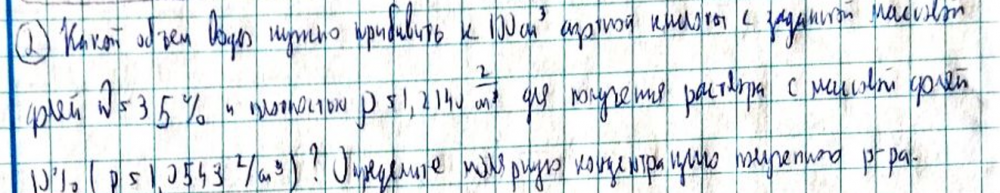 ② Какой объем воды нужно прибавить к 100 см³ азотной кислоты с заданной массовой
долей ω = 35 % и плотностью ρ = 1,2140 г/см³ для получения раствора с массовой долей
10% (ρ = 1,0543 г/см³)? Определите молярную концентрацию полученного р-ра.